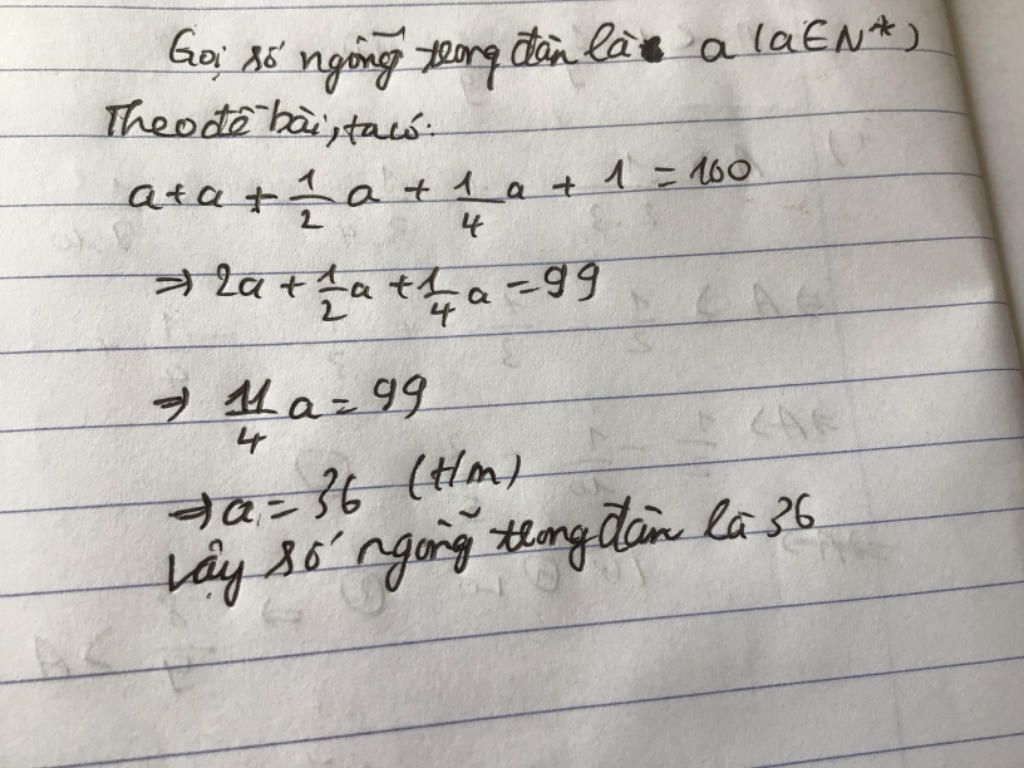 Gọi số ngỗng trong đàn là a (a∈N*)
Theo đề bài, ta có:
a + a + 1/2 a + 1/4 a + 1 = 100
⇒ 2a + 1/2 a + 1/4 a = 99
⇒ 11/4 a = 99
⇒ a = 36 (t/m)
Vậy số ngỗng trong đàn là 36